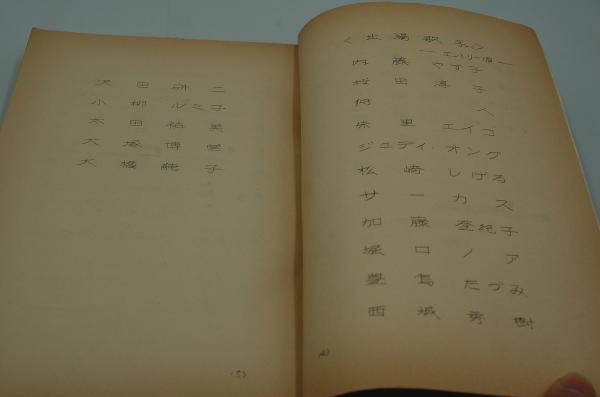 ＜出場歌手＞
―エントリー順―
内藤やす子
桜田淳子
狩人
朱里エイコ
ジュディ・オング
松崎しげる
サーカス
加藤登紀子
堀口ノア
豊島たづみ
西城秀樹
(4)
沢田研二
小柳ルミ子
太田裕美
大塚博堂
大橋純子
(5)